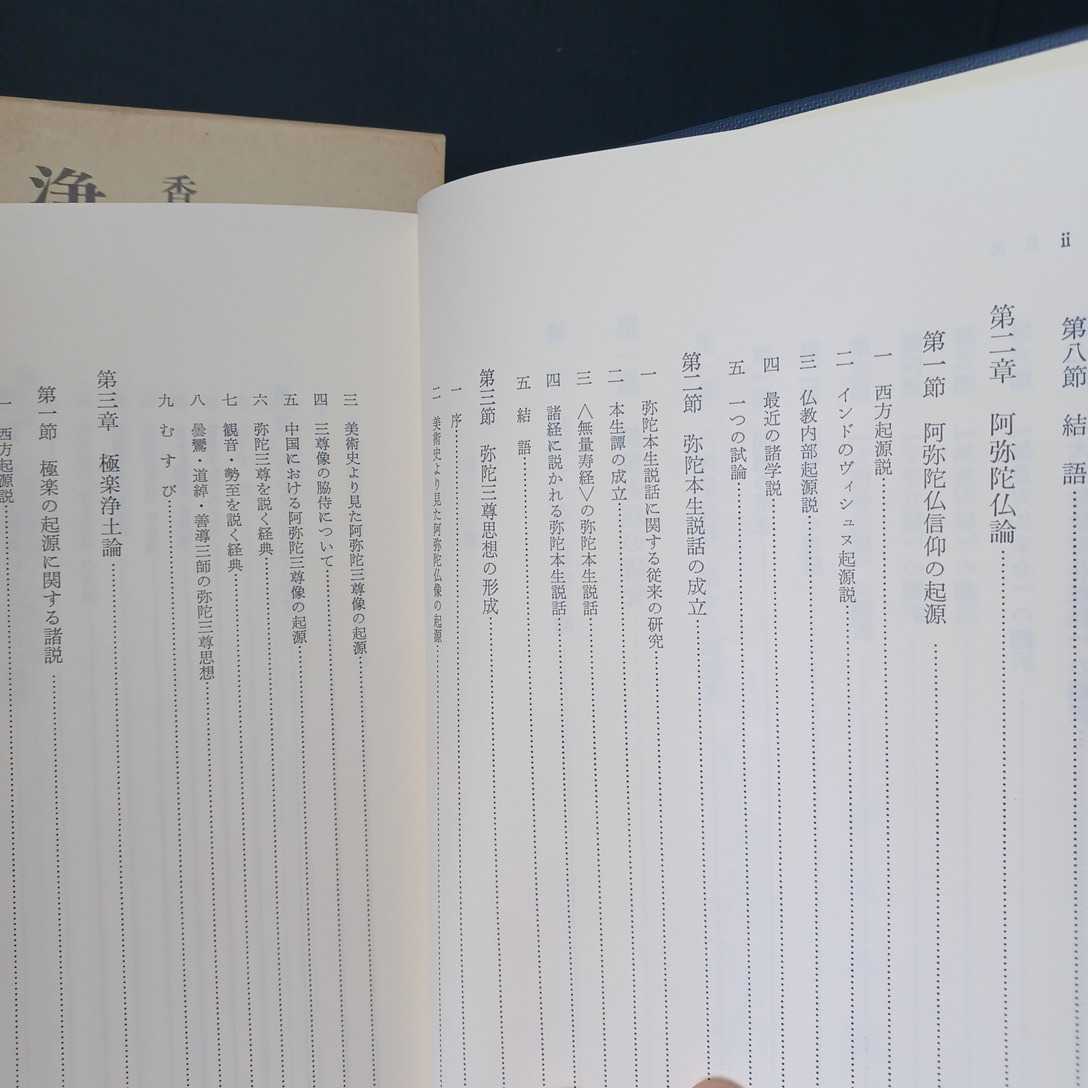 ii
第八節 結語
第二章 阿弥陀仏論
第一節 阿弥陀仏信仰の起源
一 西方起源説
二 インドのヴィシュヌ起源説
三 仏教内部起源説
四 最近の諸学説
五 一つの試論
第二節 弥陀本生説話の成立
一 弥陀本生説話に関する従来の研究
二 本生譚の成立
三 〈無量寿経〉の弥陀本生説話
四 諸経に説かれる弥陀本生説話
五 結語
第三節 弥陀三尊思想の形成
一 序
二 美術史より見た阿弥陀仏像の起源
三 美術史より見た阿弥陀三尊像の起源
四 三尊像の脇侍について
五 中国における阿弥陀三尊像の起源
六 弥陀三尊を説く経典
七 観音・勢至を説く経典
八 曇鸞・道綽・善導三師の弥陀三尊思想
九 むすび
第三章 極楽浄土論
第一節 極楽の起源に関する諸説
一 西方起源説
香
浄